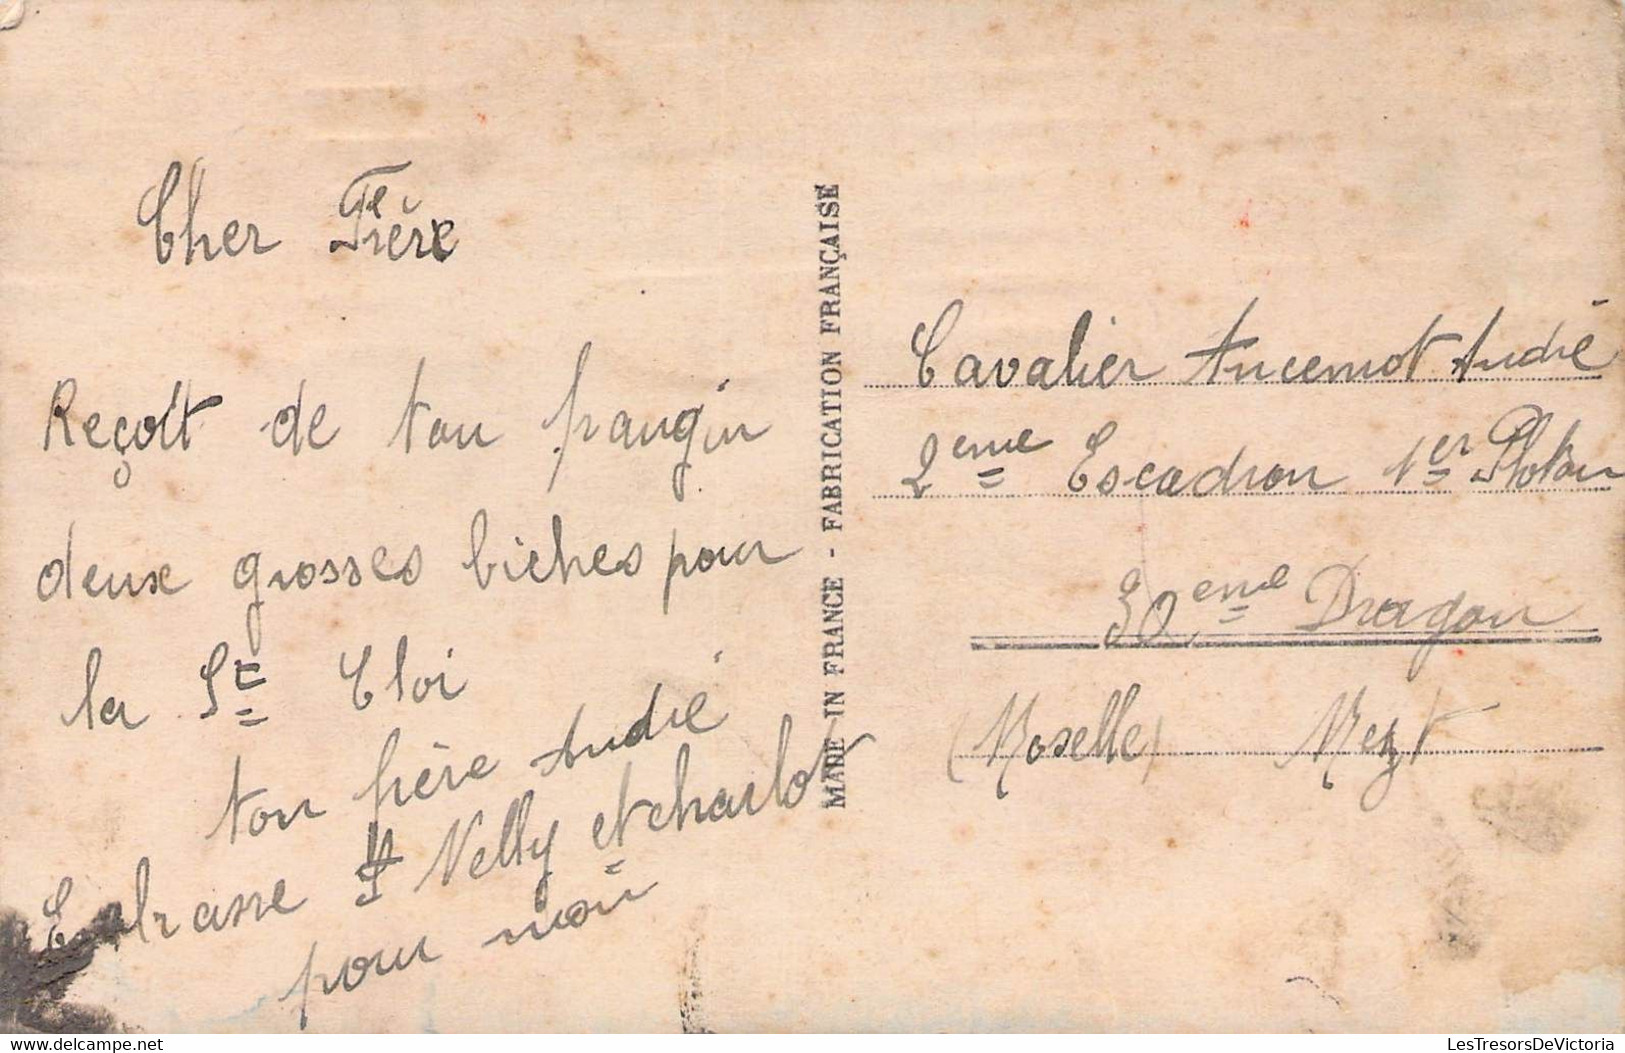 Cher Frère
Reçoit de ton frangin
deux grosses biches pour
la St Eloi
ton frère André
Embrasse Nelly et charlot
pour moi
MADE IN FRANCE - FABRICATION FRANÇAISE
Cavalier Ancemot André
2eme Escadron 1er Ploton
30eme Dragon
(Moselle) Mezt
LesTresorsDeVictoria